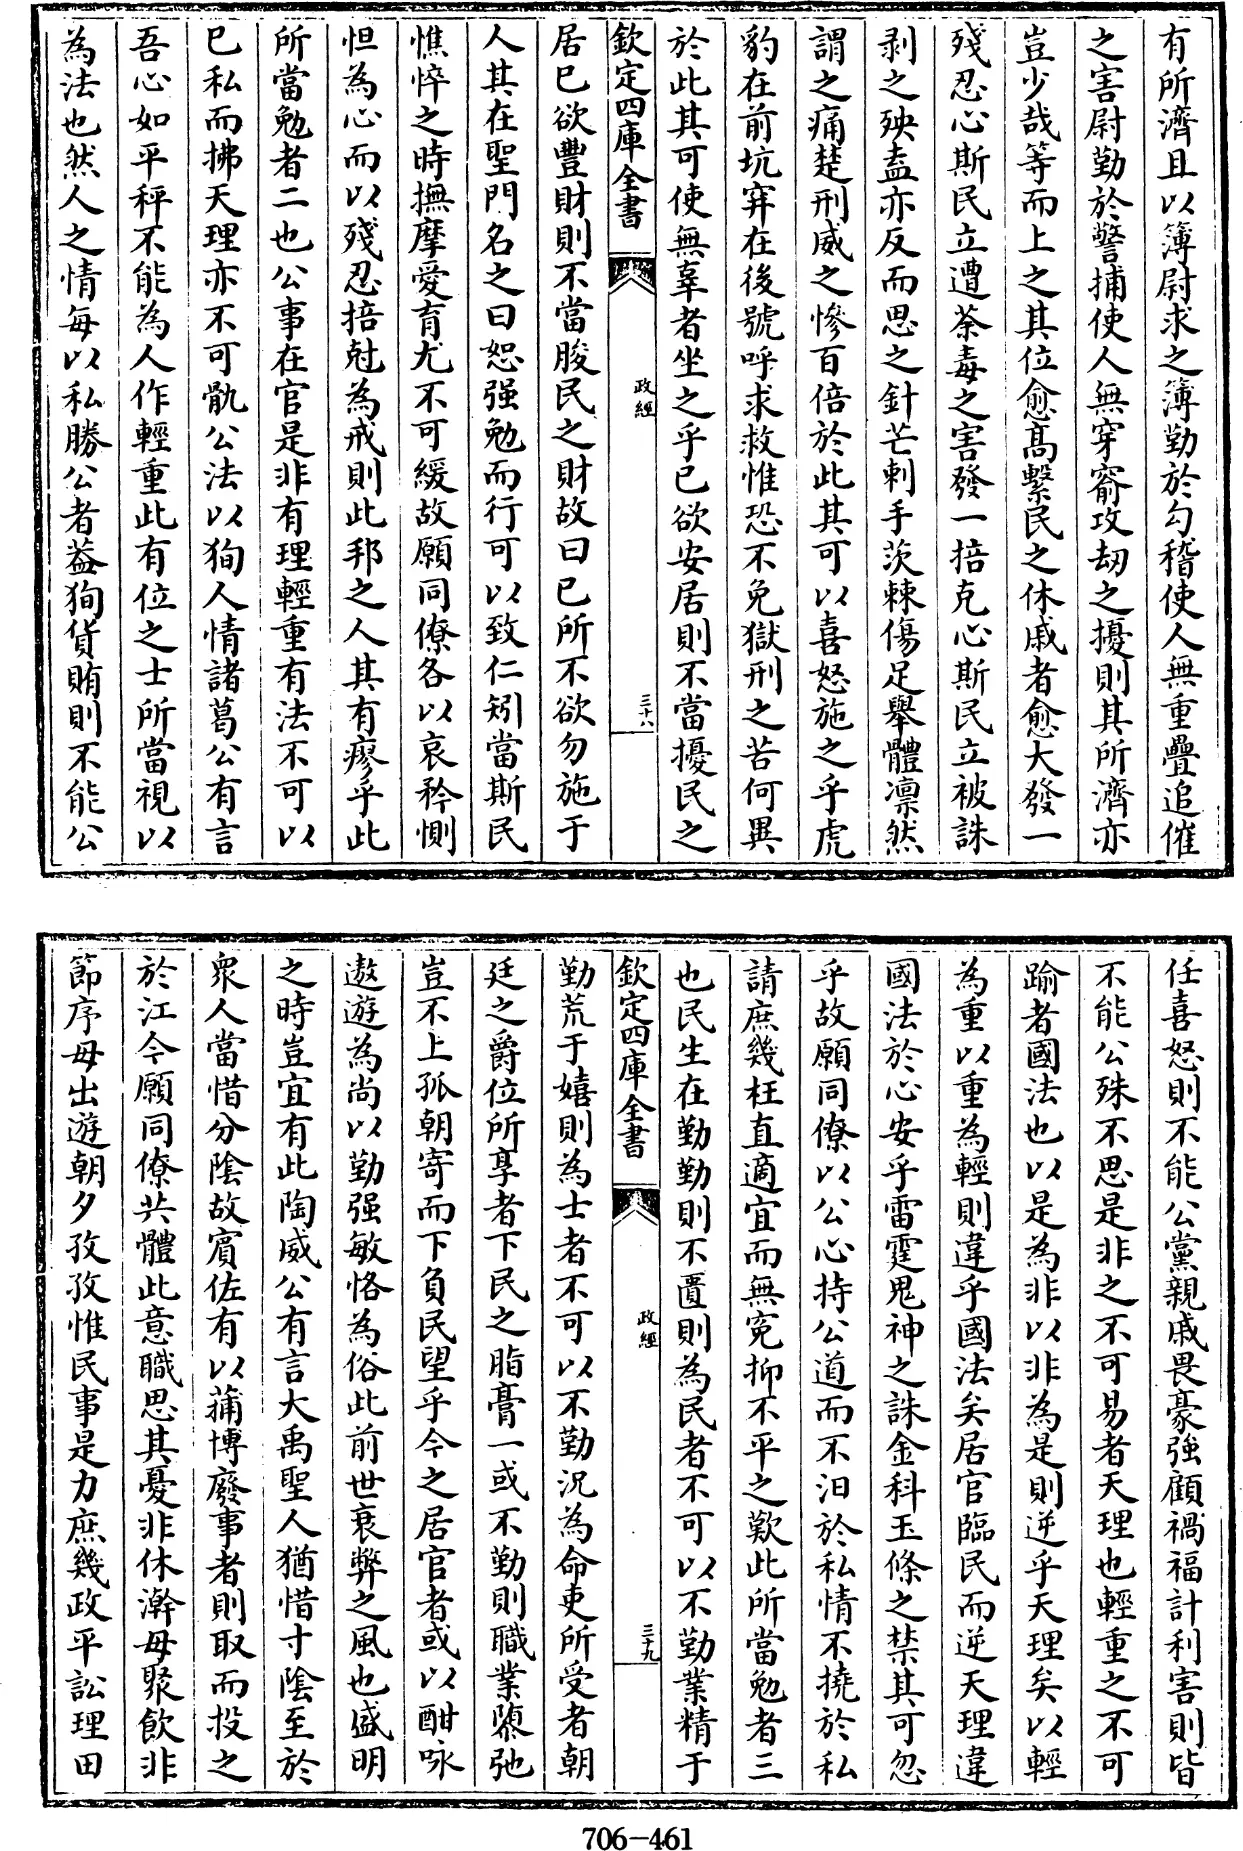 有所濟且以簿尉求之簿勤於勾稽使人無重疊追催
之害尉勤於警捕使人無穿窬攻劫之擾則其所濟亦
豈少哉等而上之其位愈髙繫民之休戚者愈大發一
殘忍心斯民立遭荼毒之害發一掊克心斯民立被誅
剥之殃盍亦反而思之針芒刺手茨棘傷足舉體凛然
謂之痛楚刑威之慘百倍於此其可以喜怒施之乎虎
豹在前坑穽在後號呼求救惟恐不免獄刑之苦何異
於此其可使無辜者坐之乎已欲安居則不當擾民之
欽定四庫全書
政經
三十八
居已欲豐財則不當朘民之財故曰已所不欲勿施于
人其在聖門名之曰恕强勉而行可以致仁矧當斯民
憔悴之時撫摩愛育尤不可緩故願同僚各以哀矜惻
怛為心而以殘忍掊尅為戒則此邦之人其有瘳乎此
所當勉者二也公事在官是非有理輕重有法不可以
已私而拂天理亦不可骫公法以狥人情諸葛公有言
吾心如平秤不能為人作輕重此有位之士所當視以
為法也然人之情每以私勝公者葢狥貨賄則不能公
任喜怒則不能公黨親戚畏豪強顧禍福計利害則皆
不能公殊不思是非之不可易者天理也輕重之不可
踰者國法也以是為非以非為是則逆乎天理矣以輕
為重以重為輕則違乎國法矣居官臨民而逆天理違
國法於心安乎雷霆鬼神之誅金科玉條之禁其可忽
乎故願同僚以公心持公道而不汩於私情不撓於私
請庶幾枉直適宜而無寃抑不平之歎此所當勉者三
也民生在勤勤則不匱則為民者不可以不勤業精于
欽定四庫全書
政經
三十九
勤荒于嬉則為士者不可以不勤況為命吏所受者朝
廷之爵位所享者下民之脂膏一或不勤則職業隳弛
豈不上孤朝寄而下負民望乎今之居官者或以酣咏
遨遊為尚以勤强敏恪為俗此前世衰弊之風也盛明
之時豈宜有此陶威公有言大禹聖人猶惜寸陰至於
衆人當惜分陰故賓佐有以蒱博廢事者則取而投之
於江今願同僚共體此意職思其憂非休澣毋聚飲非
節序毋出遊朝夕孜孜惟民事是力庶幾政平訟理田
706-461